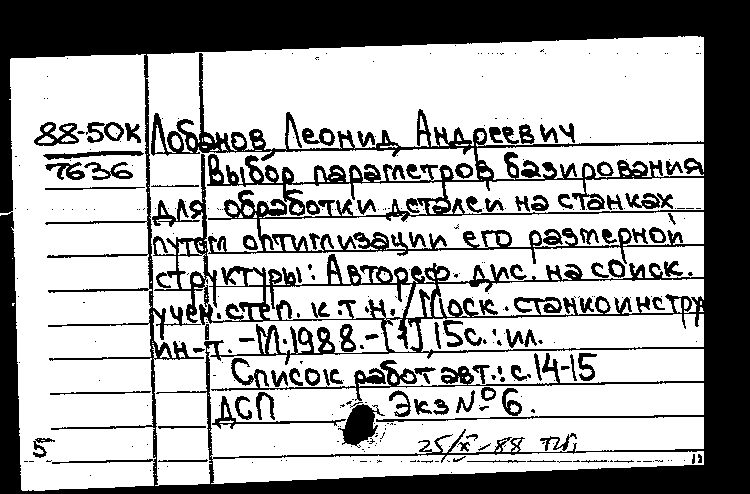 88-50К Лобанов, Леонид Андреевич
7636 Выбор параметров базирования
для обработки деталей на станках
путем оптимизации его размерной
структуры: Автореф. дис. на соиск.
учен. степ. к.т.н. / Моск. станкоинстру
ин-т. - М., 1988. - [1], 15с.: ил.
Список работ авт.: с. 14-15
ДСП Экз № 6.
5 25/X-88